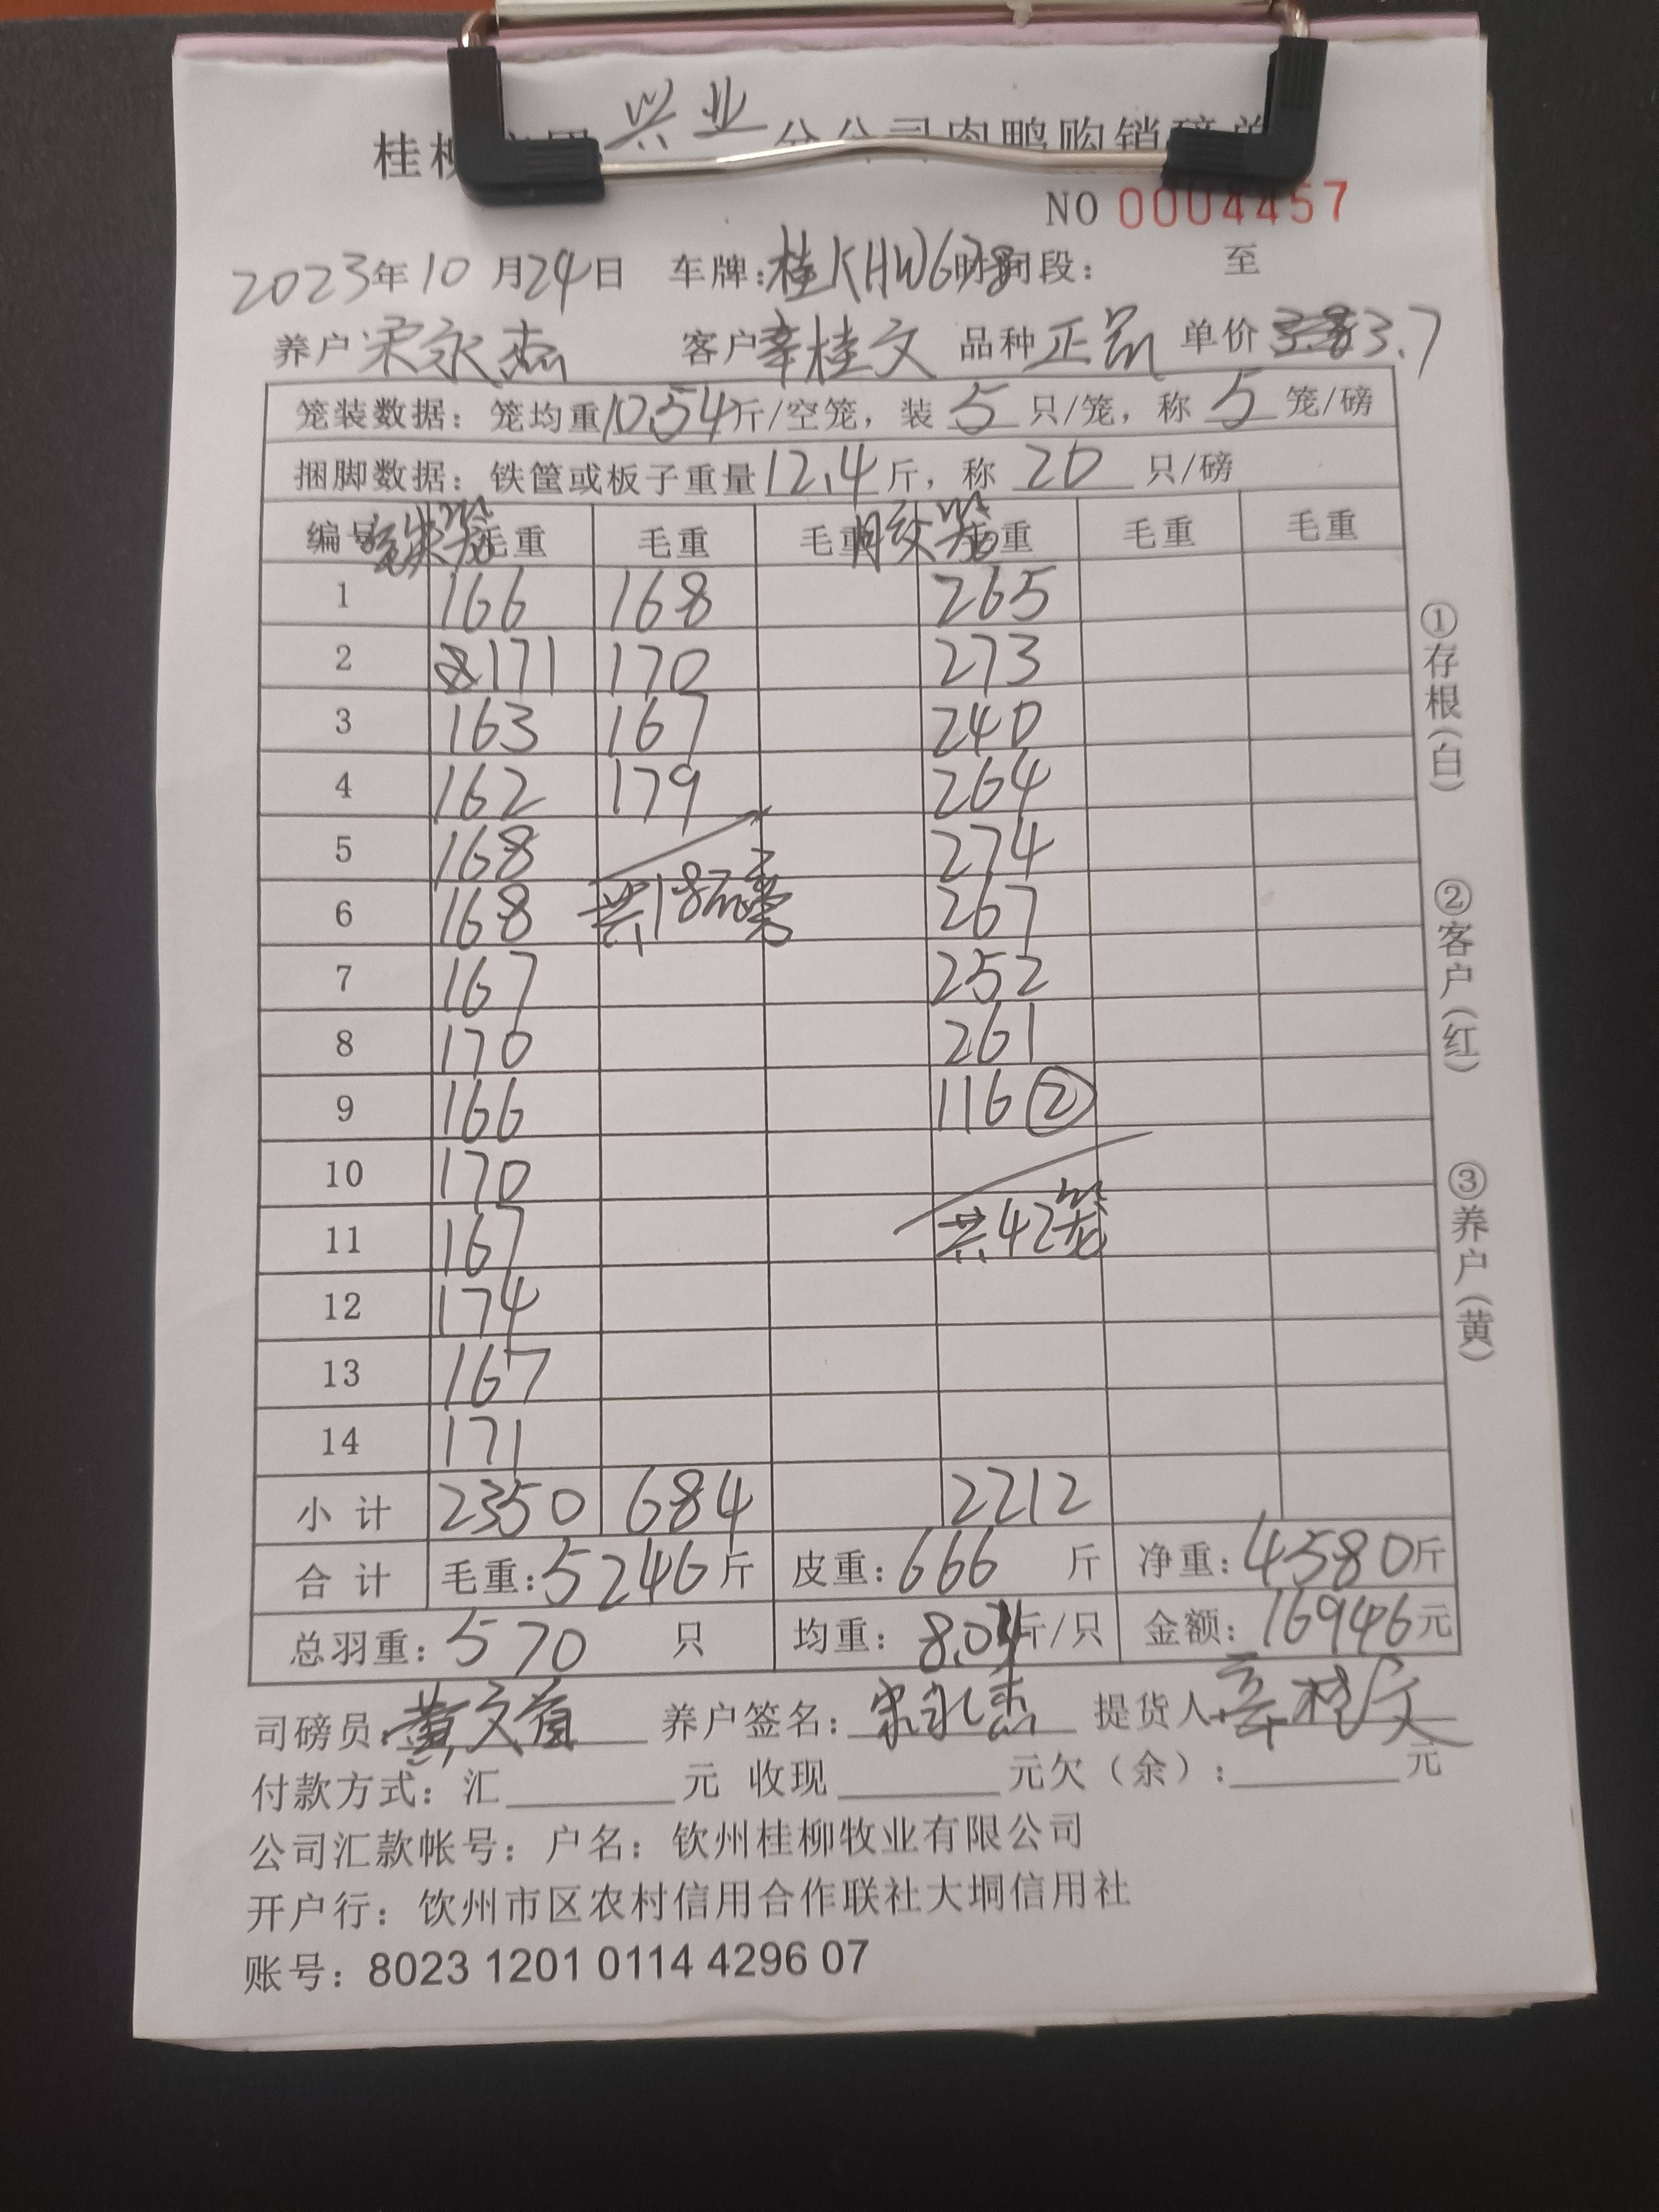 桂柳集团兴业分公司肉鸭购销磅单
NO 0004457
2023年10月24日 车牌:桂KHW678时间段: 至
养户宋永杰 客户辛桂文 品种正品 单价3.7
笼装数据:笼均重10.54斤/空笼,装5只/笼,称5笼/磅
捆脚数据:铁筐或板子重量12.4斤,称20只/磅
编号 笼 毛重 毛重 毛重 笼 毛重 毛重 毛重
1 166 168 265
2 171 170 273
3 163 167 240
4 162 179 264
5 168 274
6 168 共18磅 267
7 167 252
8 170 261
9 166 116②
10 170
11 167 共42笼
12 174
13 167
14 171
小计 2350 684 2212
合计 毛重:5246斤 皮重:666斤 净重:4580斤
总羽重:570只 均重:8.04斤/只 金额:16946元
司磅员:黄文 养户签名:宋永杰 提货人:辛桂文
付款方式:汇 元 收现 元欠(余): 元
公司汇款帐号:户名:钦州桂柳牧业有限公司
开户行:钦州市区农村信用合作联社大垌信用社
账号:8023 1201 0114 4296 07
①存根(白)
②客户(红)
③养户(黄)